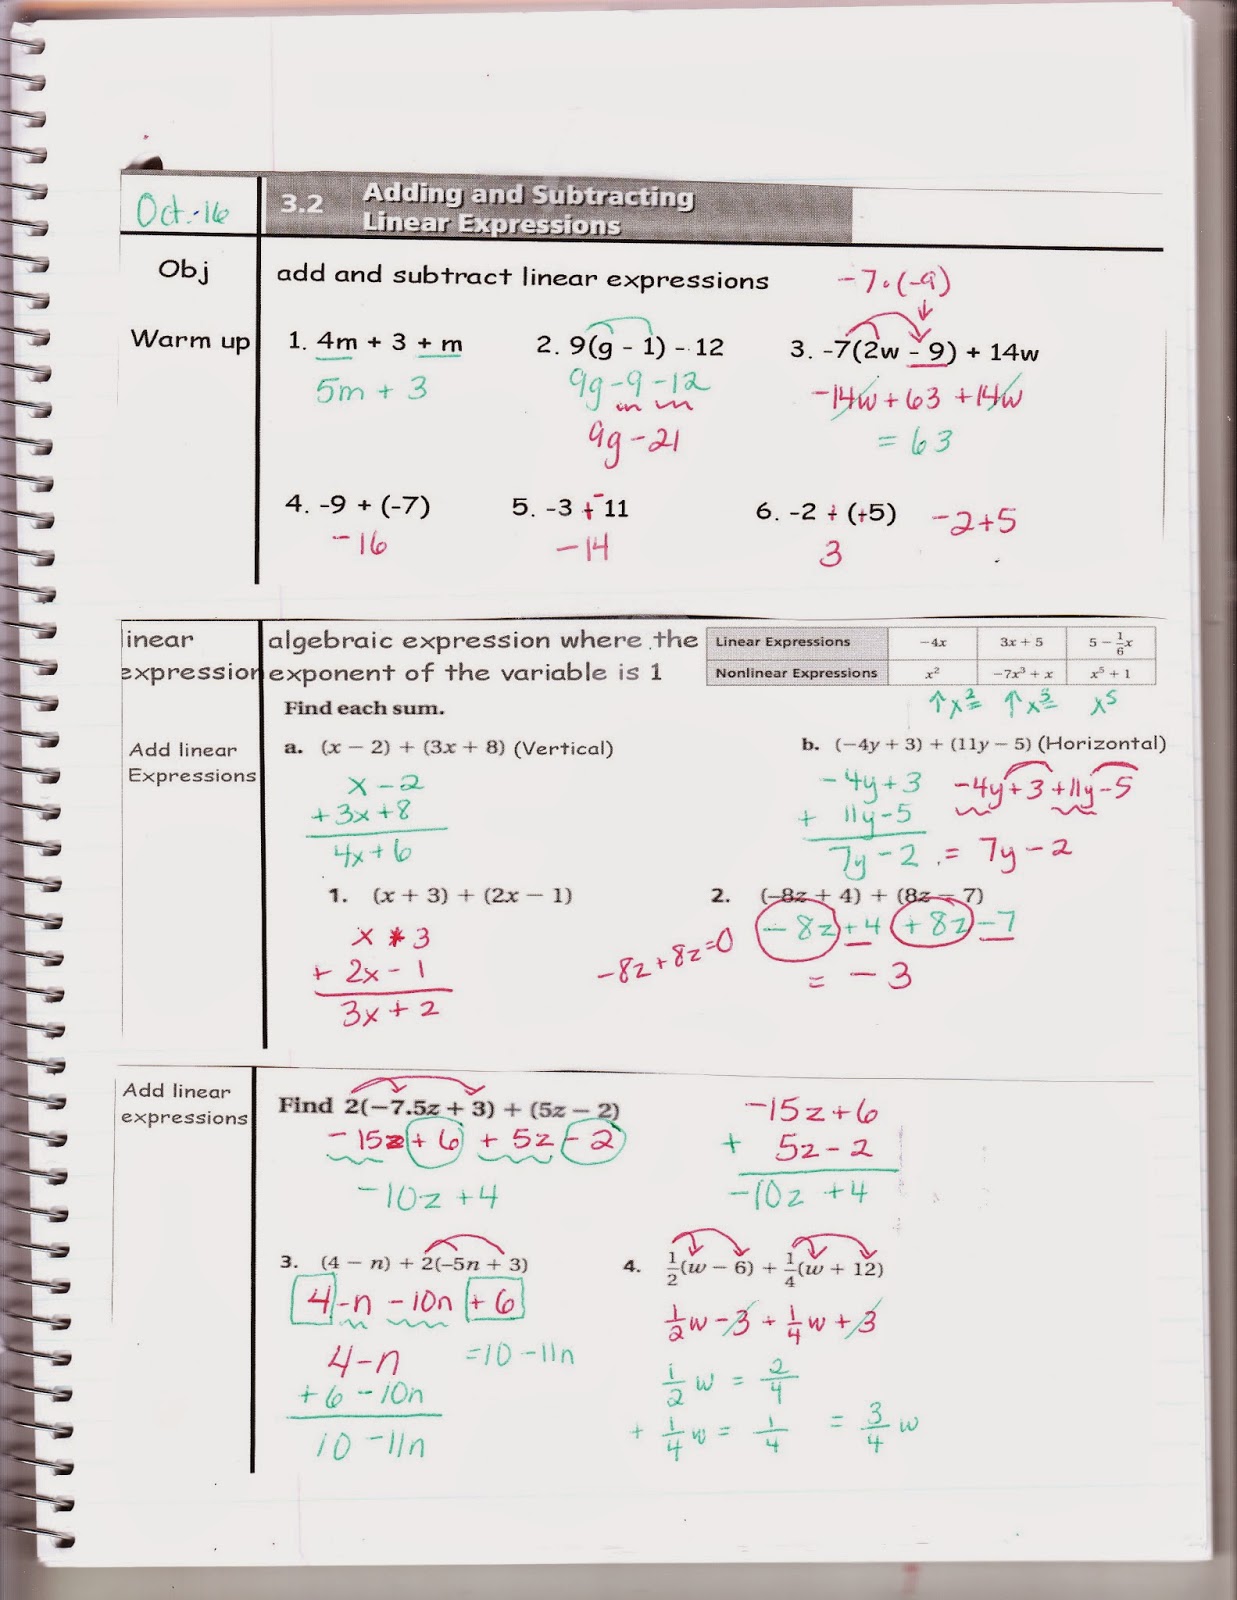 Oct. 16
3.2 Adding and Subtracting
Linear Expressions
Obj
add and subtract linear expressions
-7·(-9)
Warm up
1. 4m + 3 + m
5m + 3
2. 9(g - 1) - 12
9g - 9 - 12
9g - 21
3. -7(2w - 9) + 14w
-14w + 63 + 14w
= 63
4. -9 + (-7)
-16
5. -3 + -11
-14
6. -2 + (+5)
-2+5
3
linear
expression
algebraic expression where the
exponent of the variable is 1
Linear Expressions -4x 3x + 5 5 - 1/6 x
Nonlinear Expressions x² -7x³ + x x⁵ + 1
↑x² ↑x³ x⁵
Find each sum.
Add linear
Expressions
a. (x - 2) + (3x + 8) (Vertical)
x - 2
+ 3x + 8
4x + 6
b. (-4y + 3) + (11y - 5) (Horizontal)
-4y + 3
+ 11y - 5
7y - 2
-4y + 3 + 11y - 5
= 7y - 2
1. (x + 3) + (2x - 1)
x + 3
+ 2x - 1
3x + 2
2. (-8z + 4) + (8z - 7)
-8z + 4 + 8z - 7
-8z + 8z = 0
= -3
Add linear
expressions
Find 2(-7.5z + 3) + (5z - 2)
-15z + 6 + 5z - 2
-10z + 4
-15z + 6
+ 5z - 2
-10z + 4
3. (4 - n) + 2(-5n + 3)
4 - n - 10n + 6
= 10 - 11n
4 - n
+ 6 - 10n
10 - 11n
4. 1/2(w - 6) + 1/4(w + 12)
1/2w - 3 + 1/4w + 3
1/2 w = 2/4
+ 1/4 w = 1/4 = 3/4 w